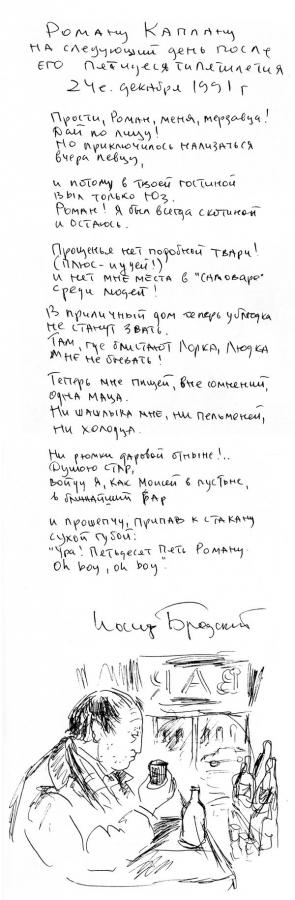 Роману Каплану
на следующий день после
его пятидесятипятилетия
24е. декабря 1991 г
Прости, Роман, меня, мерзавца!
Дай по лицу!
Но приключилось нализаться
вчера певцу,
и потому в твоей гостиной
выл только Юз.
Роман! Я был всегда скотиной
и остаюсь.
Прощенья нет подобной твари!
(Плюс – иудей!)
И нет мне места в "Самоваре"
среди людей!
В приличный дом теперь ублюдка
не станут звать.
Там, где блистают Лорка, Людка
мне не бывать!
Теперь мне пищей, вне сомнений,
одна маца.
Ни шашлыка мне, ни пельменей,
ни холодца.
Ни рюмки даровой отныне!..
Душою стар,
войду я, как Мойсей в пустыне,
в ближайший бар
и прошепчу, припав к стакану
сухой губой:
"Ура! Петьдесят Петь Роману.
Oh boy, oh boy."
Иосиф Бродский
БАР